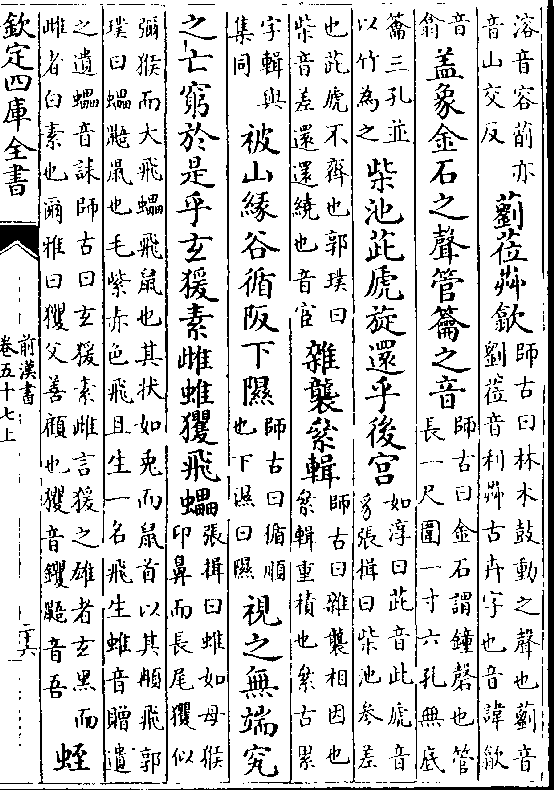 溶音容萷亦
音山交反
藰莅芔歙
師古曰林木鼓動之聲也藰音
劉莅音利芔古卉字也音諱歙
音
翕
盖象金石之聲管籥之音
師古曰金石謂鐘磬也管
長一尺圍一寸六孔無底
籥三孔並
以竹為之
柴池茈虒旋還乎後宮
如淳曰茈音此虒音
豸張揖曰柴池參差
也茈虒不齊也郭璞曰
柴音差還還繞也音宦
雜襲絫輯
師古曰雜襲相因也
絫輯重積也絫古累
字輯與
集同
被山緣谷循阪下隰
師古曰循順
也下濕曰隰
視之無端究
之亡窮於是乎玄猨素雌蜼玃飛蠝
張揖曰蜼如母猴
卬鼻而長尾玃似
彌猴而大飛蠝飛鼠也其狀如兎而鼠首以其䫇飛郭
璞曰蠝鼯鼠也毛紫赤色飛且生一名飛生蜼音贈遺
之遺蠝音誄師古曰玄猨素雌言猨之雄者玄黑而
雌者白素也爾雅曰玃父善顧也玃音钁鼯音吾
蛭
欽定四庫全書
前漢書
卷五十七上
二十六